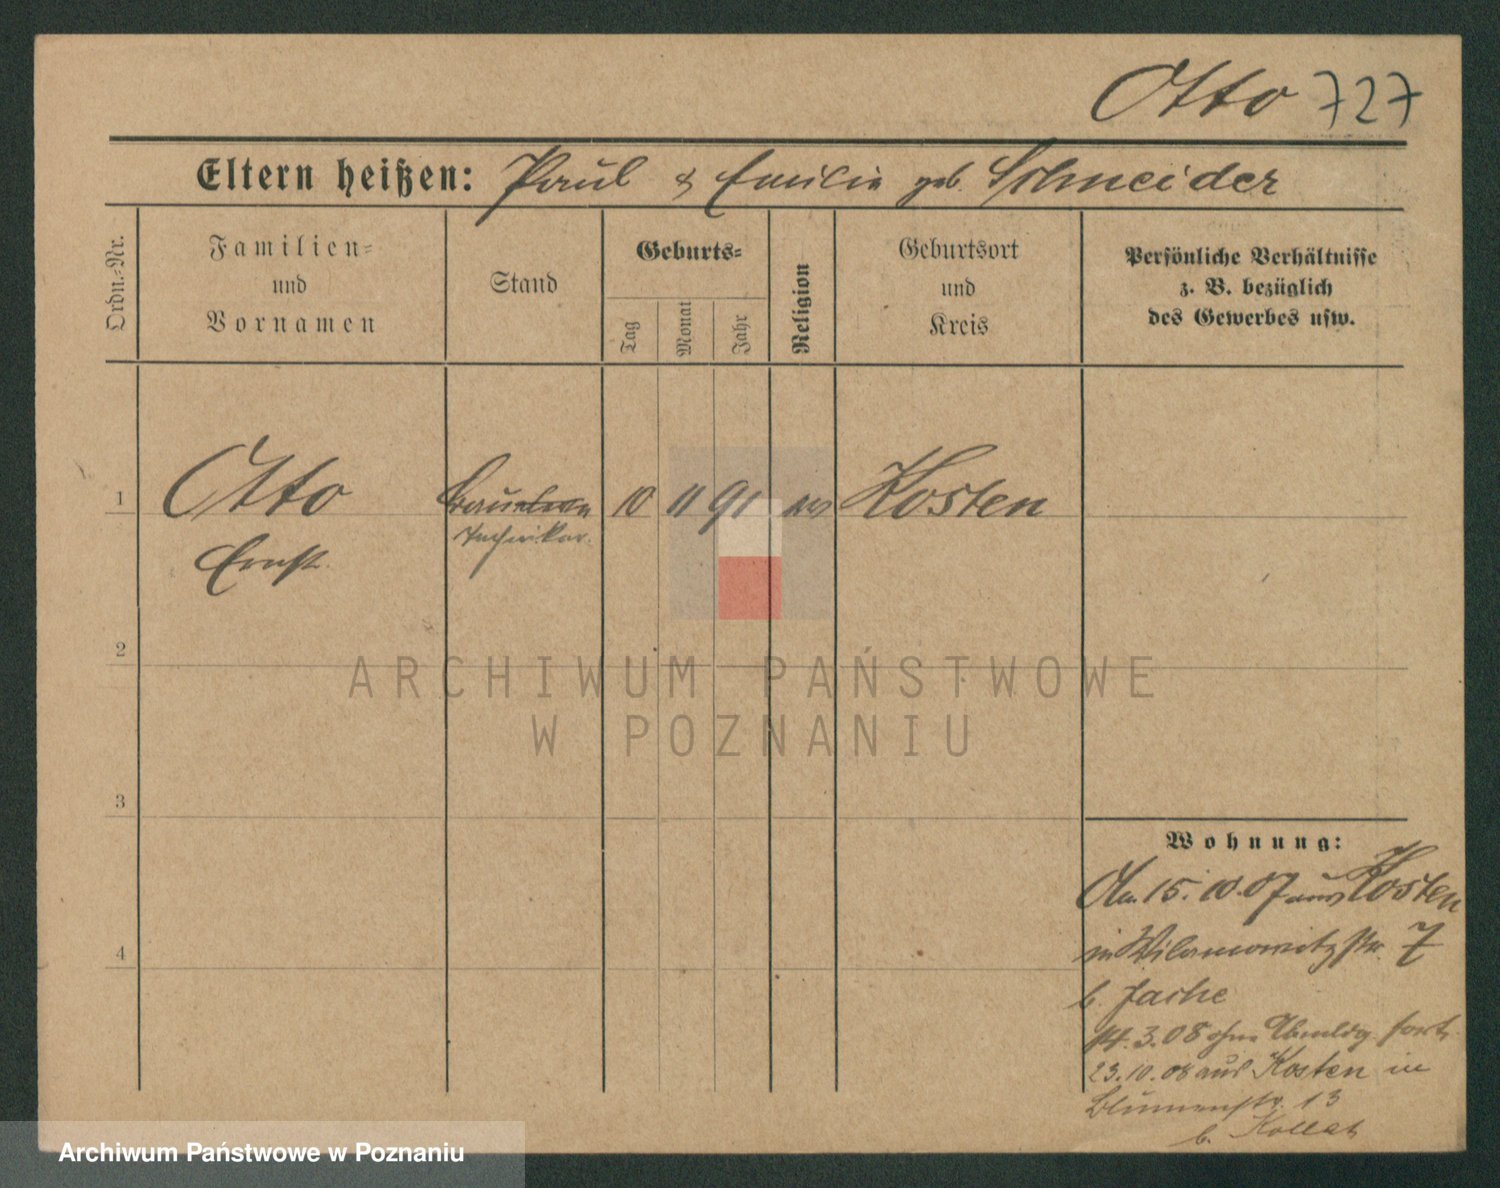 Otto 727
Eltern heißen: Paul & Emilie geb. Schneider
Ordn.-Nr.
Familien-
und
Vornamen
Stand
Geburts-
Tag
Monat
Jahr
Religion
Geburtsort
und
Kreis
Persönliche Verhältnisse
z. B. bezüglich
des Gewerbes usw.
1 Otto 10 11 91 Kosten
Techniker.
Ernst
2
3
4
Wohnung:
Am 15. 10. 07 aus Kosten
in Wilamowitzstr. 7
b. Jache
14.3.08 ohne Abmldg. fort
23.10.08 aus Kosten in
Blumenstr. 13
b. Kollat
ARCHIWUM PAŃSTWOWE
W POZNANIU
Archiwum Państwowe w Poznaniu